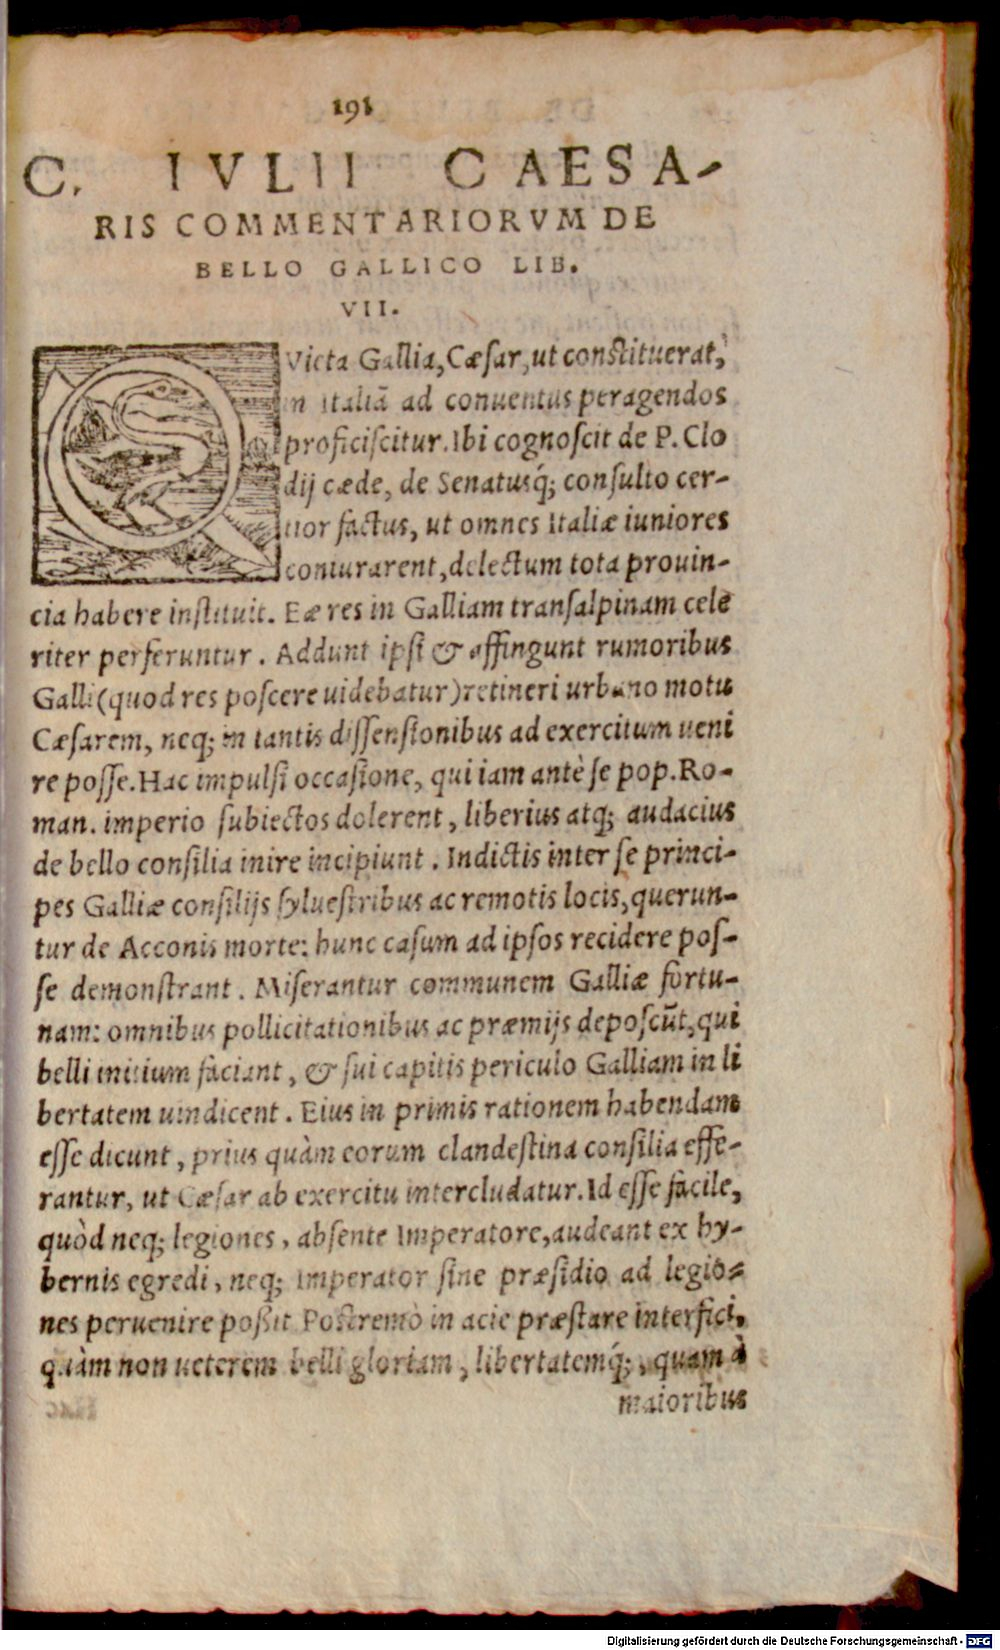 191
C. IVLII CAESA-
RIS COMMENTARIORVM DE
BELLO GALLICO LIB.
VII.
QVicta Gallia, Cæsar, ut constituerat,
in Italiã ad conuentus peragendos
proficiscitur. Ibi cognoscit de P. Clo
dij cæde, de Senatusq́; consulto cer-
tior factus, ut omnes Italiæ iuniores
coniurarent, delectum tota prouin-
cia habere instituit. Eæ res in Galliam transalpinam cele
riter perferuntur. Addunt ipsi & affingunt rumoribus
Galli (quod res poscere uidebatur) retineri urbano motu
Cæsarem, neq; in tantis dissensionibus ad exercitum ueni
re posse. Hac impulsi occasione, qui iam antè se pop. Ro-
man. imperio subiectos dolerent, liberius atq; audacius
de bello consilia inire incipiunt. Indictis inter se princi-
pes Galliæ consilijs syluestribus ac remotis locis, querun-
tur de Acconis morte: hunc casum ad ipsos recidere pos-
se demonstrant. Miserantur communem Galliæ fortu-
nam: omnibus pollicitationibus ac præmijs deposcũt, qui
belli initium faciant, & sui capitis periculo Galliam in li
bertatem uindicent. Eius in primis rationem habendam
esse dicunt, prius quàm eorum clandestina consilia effe-
rantur, ut Cæsar ab exercitu intercludatur. Id esse facile,
quòd neq; legiones, absente Imperatore, audeant ex hy-
bernis egredi, neq; Imperator sine præsidio ad legio-
nes peruenire possit Postremò in acie præstare interfici,
quàm non ueterem belli gloriam, libertatemq́;, quam à
maioribus
Digitalisierung gefördert durch die Deutsche Forschungsgemeinschaft - DFG